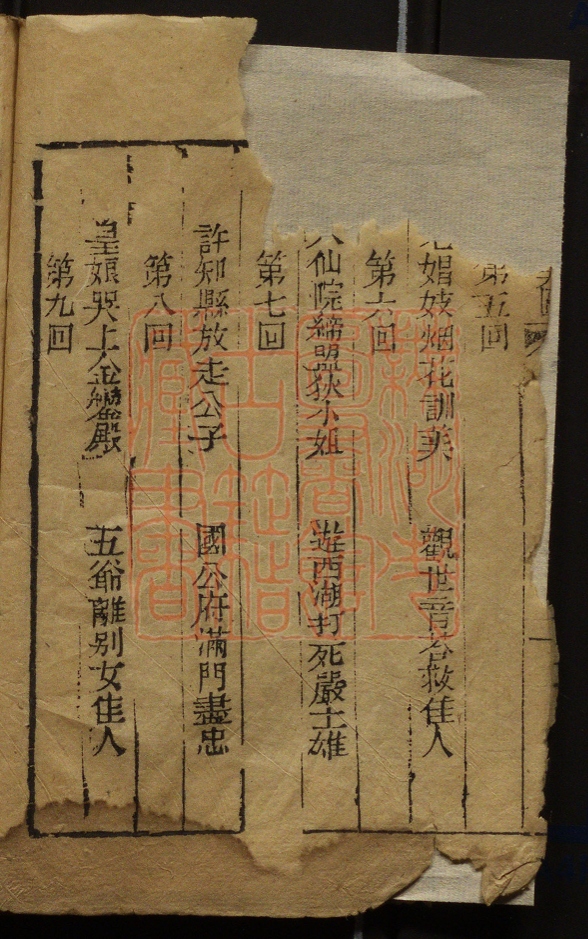 第五回
娼妓烟花訓美　觀世音荅救佳人
第六回
仙院締盟狄小姐　遊西湖打死嚴士雄
第七回
許知縣放走公子　國公府滿門盡忠
第八回
皇娘哭上金鑾殿　五爺離别女佳人
第九回